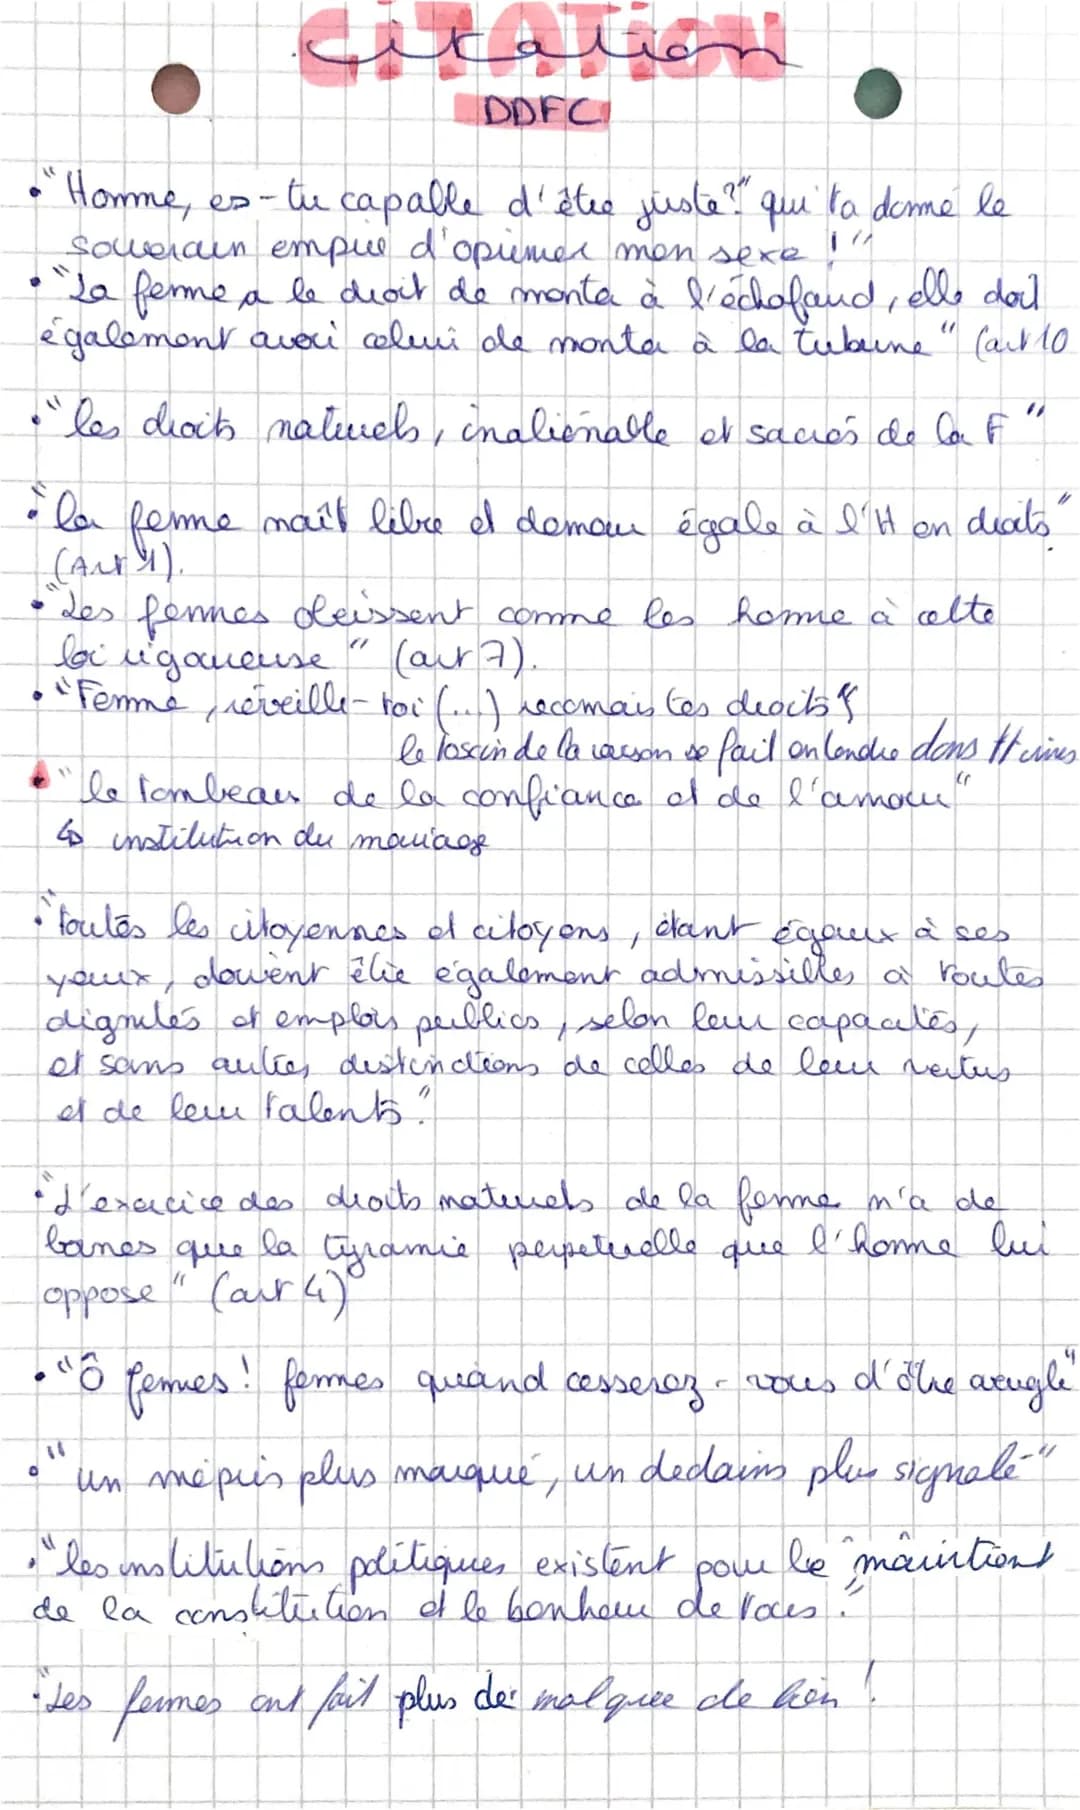 CITATION
Citation
DDFC
• "Homme, es-tu capable d'être juste?" qui t'a donné le
souverain empire d'opprimer mon sexe !"
• "La femme a le droit de monter à l'échafaud, elle doit
également avoir celui de monter à la tribune" (art 10
• "les droits naturels, inaliénable et sacrés de la F"
• "la femme naît libre et demeure égale à l'H en droits"
(Art 1).
• "Les femmes obéissent comme les homme à cette
loi rigoureuse" (art 7).
• "Femme, réveille-toi (...) reconnais tes droits"
le toscin de la raison se fait entendre dans
• "le tombeau de la confiance et de l'amour"
↳ institution du mariage
• "Toutes les citoyennes et citoyens, étant égaux à ses
yeux, doivent être également admissibles à toutes
dignités et emplois publics, selon leur capacités,
et sans autres distinctions de celles de leur vertus
et de leur talents."
• "L'exercice des droits naturels de la femme n'a de
bornes que la tyrannie perpétuelle que l'homme lui
oppose" (art 4)
• "Ô femmes! femmes quand cesserez-vous d'être aveugle"
• "un mépris plus marqué, un dedains plus signalé"
• "les institutions politiques existent pour le maintient
de la constitution et le bonheur de tous."
• "Les femmes ont fait plus de mal que de bien !